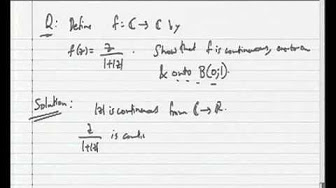 Q: Define f: ℂ → ℂ by
f(z) = z / 1+|z| . Show that f is continuous, one-to-one
& onto B(0;1).
Solution: |z| is continuous from ℂ → ℝ.
z / 1+|z| is conti